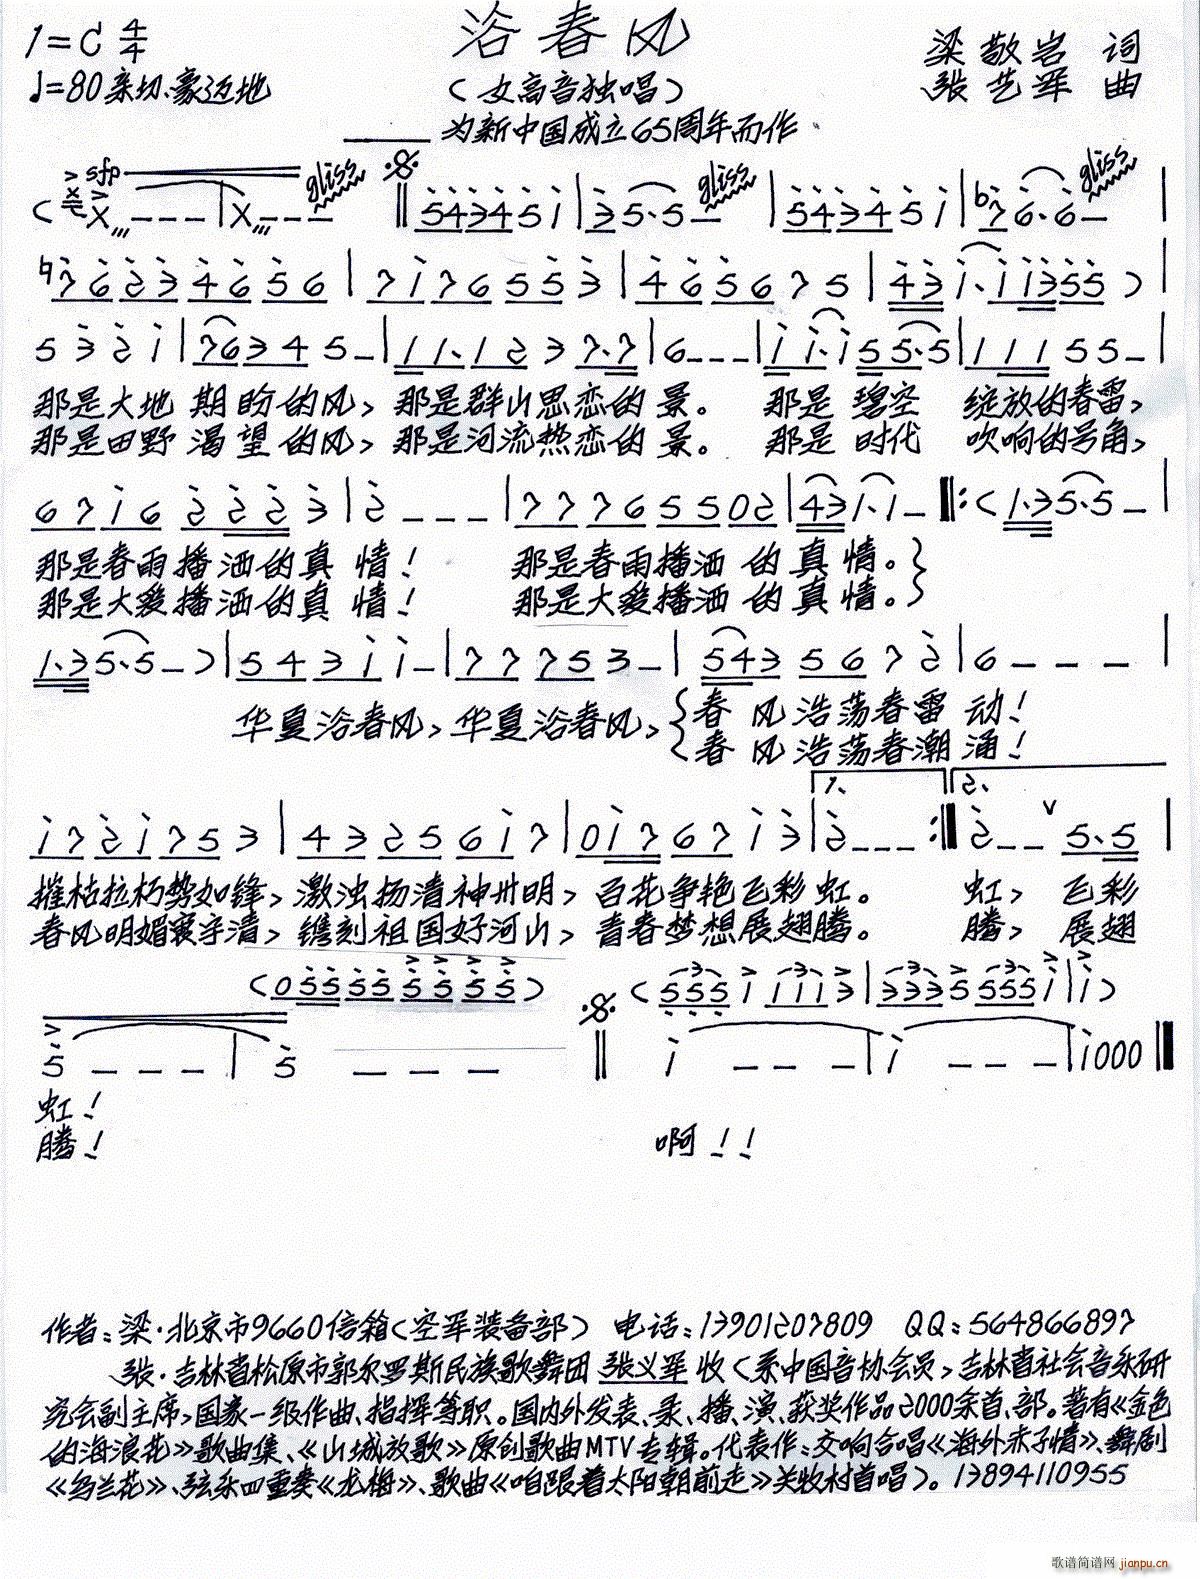 浴春风
1=C 4/4
♩=80 亲切、豪迈地
(女高音独唱)
梁敬岩 词
张艺军 曲
——为新中国成立65周年而作
sfp gliss gliss gliss
那是大地 期盼的风, 那是群山思恋的 景。 那是 碧空 绽放的春雷,
那是田野 渴望的风, 那是河流热恋的 景。 那是 时代 吹响的号角,
那是春雨播洒的真 情! 那是春雨播洒 的真情。}
那是大爱播洒的真 情! 那是大爱播洒 的真情。}
华夏浴春风, 华夏浴春风, {春 风浩荡春雷 动!
{春 风浩荡春潮 涌!
1. 2.
摧枯拉朽势如锋, 激浊扬清神州明, 百花争艳飞彩 虹。 虹, 飞彩
春风明媚寰宇清, 镌刻祖国好河山, 青春梦想展翅腾。 腾, 展翅
虹!
腾! 啊!!
作者:梁·北京市9660信箱(空军装备部) 电话:13901207809 QQ:564866897
张·吉林省松原市郭尔罗斯民族歌舞团 张义军 收(系中国音协会员,吉林省社会音乐研
究会副主席,国家一级作曲、指挥等职。国内外发表、录、播、演、获奖作品2000余首、部。著有《金色
的海浪花》歌曲集、《山城放歌》原创歌曲MTV专辑。代表作:交响合唱《海外赤子情》、舞剧
《乌兰花》、弦乐四重奏《龙梅》、歌曲《咱跟着太阳朝前走》关牧村首唱)。13894110955
歌谱简谱网 jianpu.cn